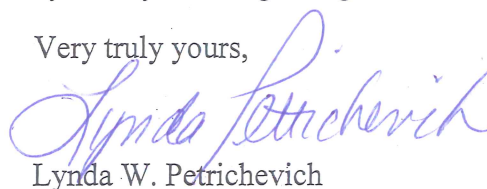 Very truly yours,
Lynda Petrichevich
Lynda W. Petrichevich